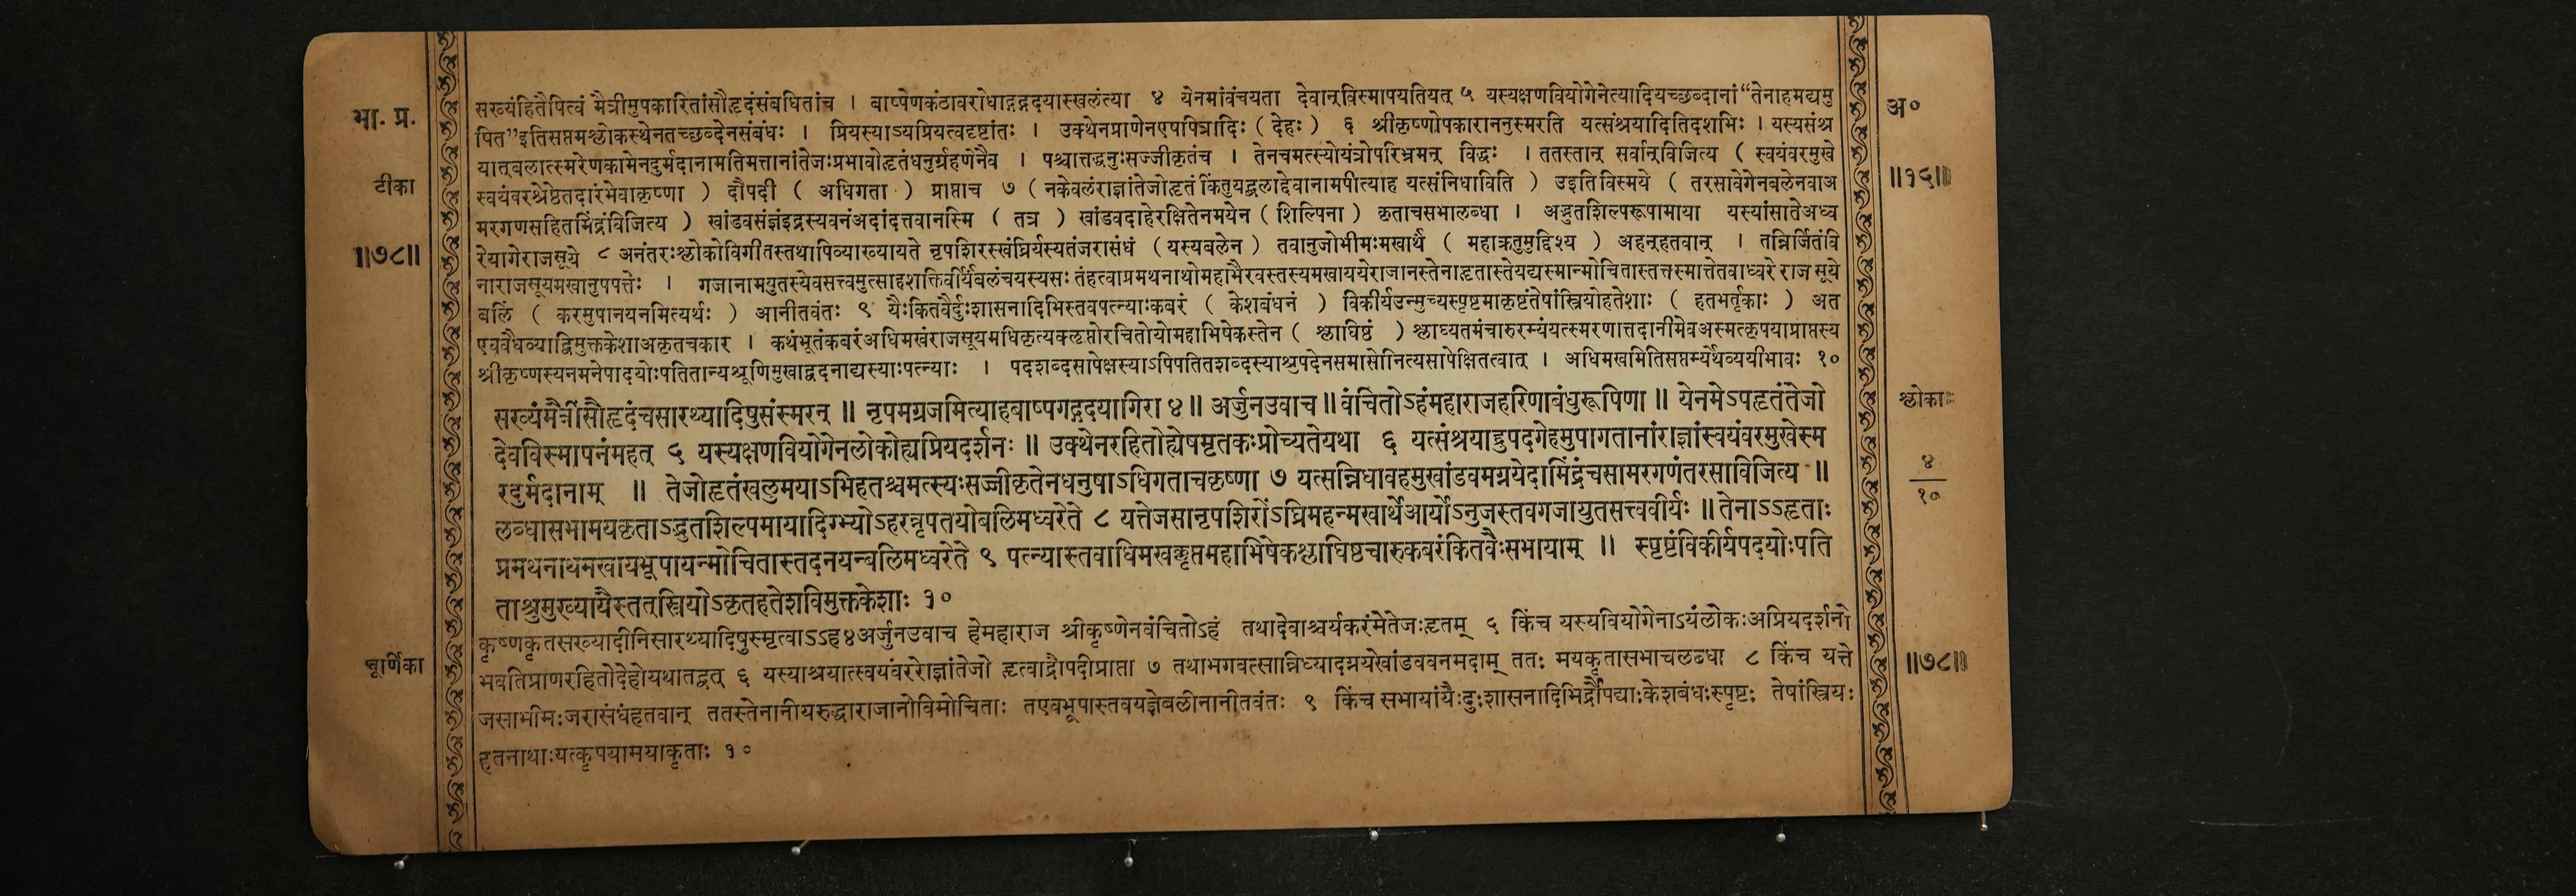 भा. प्र.
टीका
॥७८॥
सख्यंहितैषित्वं मैत्रीमुपकारितांसौहृदंसंबधितांच । बाष्पेणकंठावरोधाद्गद्गदयास्खलंत्या ४ येनमांवंचयता देवान्विस्मापयतियत् ५ यस्यक्षणवियोगेनेत्यादियच्छब्दानां“तेनाहमद्यमु
षित”इतिसप्तमश्लोकस्थेनतच्छब्देनसंबंधः । प्रियस्याऽप्यप्रियत्वदृष्टांतः । उक्थेनप्राणेनएषपित्रादिः (देहः) ६ श्रीकृष्णोपकाराननुस्मरति यत्संश्रयादितिदशभिः । यस्यसंश्र
यात्बलात्स्मरेणकामेनदुर्मदानामतिमत्तानांतेजःप्रभावोहृतंधनुर्ग्रहणेनैव । पश्चात्तद्धनुःसज्जीकृतंच । तेनचमत्स्योयंत्रोपरिभ्रमन् विद्धः । ततस्तान् सर्वान्विजित्य ( स्वयंवरमुखे
स्वयंवरश्रेष्ठेतदारंभेवाकृष्णा ) द्रौपदी ( अधिगता ) प्राप्ताच ७ ( नकेवलंराज्ञांतेजोहृतं किंतुयद्बलाद्देवानामपीत्याह यत्संनिधाविति ) उइतिविस्मये ( तरसावेगेनबलेनवाअ
मरगणसहितमिंद्रंविजित्य ) खांडवसंज्ञंइंद्रस्यवनंअदांदत्तवानस्मि ( तत्र ) खांडवदाहेरक्षितेनमयेन (शिल्पिना) कृताचसभालब्धा । अद्भुतशिल्परूपामाया यस्यांसातेअध्व
रेयागेराजसूये ८ अनंतरःश्लोकोविगीतस्तथापिव्याख्यायते नृपशिरस्स्वंघ्रिर्यस्यतंजरासंधं (यस्यबलेन) तवानुजोभीमःमखार्थं ( महाक्रतुमुद्दिश्य ) अहन्हतवान् । तन्निर्जितंवि
नाराजसूयमखानुपपत्तेः । गजानामयुतस्येवसत्त्वमुत्साहशक्तिर्वीर्यंबलंचयस्यसः तंहत्वाप्रमथनाथोमहाभैरवस्तस्यमखाययेराजानस्तेनाहृतास्तेयद्यस्मान्मोचितास्तत्तस्मात्तेतवाध्वरे राजसूये
बलिं ( करमुपानयनमित्यर्थः ) आनीतवंतः ९ यैःकितवैर्दुःशासनादिभिस्तवपत्न्याःकबरं ( केशबंधनं ) विकीर्यउन्मुच्यस्पृष्टमाकृष्टंतेषांस्त्रियोहतेशाः ( हतभर्तृकाः ) अत
एववैधव्याद्विमुक्तकेशाअकृतचकार । कथंभूतंकबरंअधिमखंराजसूयमधिकृत्यक्लृप्तोरचितोयोमहाभिषेकस्तेन ( श्लाघिष्ठं ) श्लाघ्यतमंचारुरम्यंयत्स्मरणात्तदानीमेवअस्मत्कृपयाप्राप्तस्य
श्रीकृष्णस्यनमनेपादयोःपतितान्यश्रूणिमुखाद्वदनाद्यस्याःपत्न्याः । पदशब्दसापेक्षस्याऽपिपतितशब्दस्याश्रुपदेनसमासोनित्यसापेक्षितत्वात् । अधिमखमितिसप्तम्यर्थेव्ययीभावः १०
सख्यंमैत्रींसौहृदंचसारथ्यादिषुसंस्मरन् ॥ नृपमग्रजमित्याहबाष्पगद्गदयागिरा ४ ॥ अर्जुनउवाच ॥ वंचितोऽहंमहाराजहरिणाबंधुरूपिणा ॥ येनमेऽपहृतंतेजो
देवविस्मापनंमहत् ५ यस्यक्षणवियोगेनलोकोह्यप्रियदर्शनः ॥ उक्थेनरहितोह्येषमृतकःप्रोच्यतेयथा ६ यत्संश्रयाद्द्रुपदगेहमुपागतानांराज्ञांस्वयंवरमुखेस्म
रदुर्मदानाम् ॥ तेजोहृतंखलुमयाऽभिहतश्चमत्स्यःसज्जीकृतेनधनुषाऽधिगताचकृष्णा ७ यत्सन्निधावहमुखांडवमग्नयेदामिंद्रंचसामरगणंतरसाविजित्य ॥
लब्धासभामयकृताऽद्भुतशिल्पमायादिग्भ्योऽहरन्नृपतयोबलिमध्वरेते ८ यत्तेजसानृपशिरोंऽघ्रिमहन्मखार्थेआर्योऽनुजस्तवगजायुतसत्त्ववीर्यः ॥ तेनाऽऽहृताः
प्रमथनाथमखायभूपायन्मोचितास्तदनयन्बलिमध्वरेते ९ पत्न्यास्तवाधिमखक्लृप्तमहाभिषेकश्लाघिष्ठचारुकबरंकितवैःसभायाम् ॥ स्पृष्टंविकीर्यपदयोःपति
ताश्रुमुख्यायैस्तत्स्त्रियोऽकृतहतेशविमुक्तकेशाः १०
चूर्णिका
कृष्णकृतसख्यादीनिसारथ्यादिषुस्मृत्वाऽऽह४अर्जुनउवाच हेमहाराज श्रीकृष्णेनवंचितोऽहं तथादेवाश्चर्यकरंमेतेजःहृतम् ५ किंच यस्यवियोगेनाऽयंलोकःअप्रियदर्शनो
भवतिप्राणरहितोदेहोयथातद्वत् ६ यस्याश्रयात्स्वयंवरेराज्ञांतेजो हृत्वाद्रौपदीप्राप्ता ७ तथाभगवत्सान्निध्यादग्नयेखांडववनमदाम् ततः मयकृतासभाचलब्धा ८ किंच यत्ते
जसाभीमःजरासंधंहतवान् ततस्तेनानीयरुद्धाराजानोविमोचिताः तएवभूपास्तवयज्ञेबलीनानीतवंतः ९ किंच सभायांयैःदुःशासनादिभिर्द्रौपद्याःकेशबंधःस्पृष्टः तेषांस्त्रियः
हतनाथाःयत्कृपयामयाकृताः १०
अ०
॥१५॥
श्लोकाः
४
१०
॥७८॥